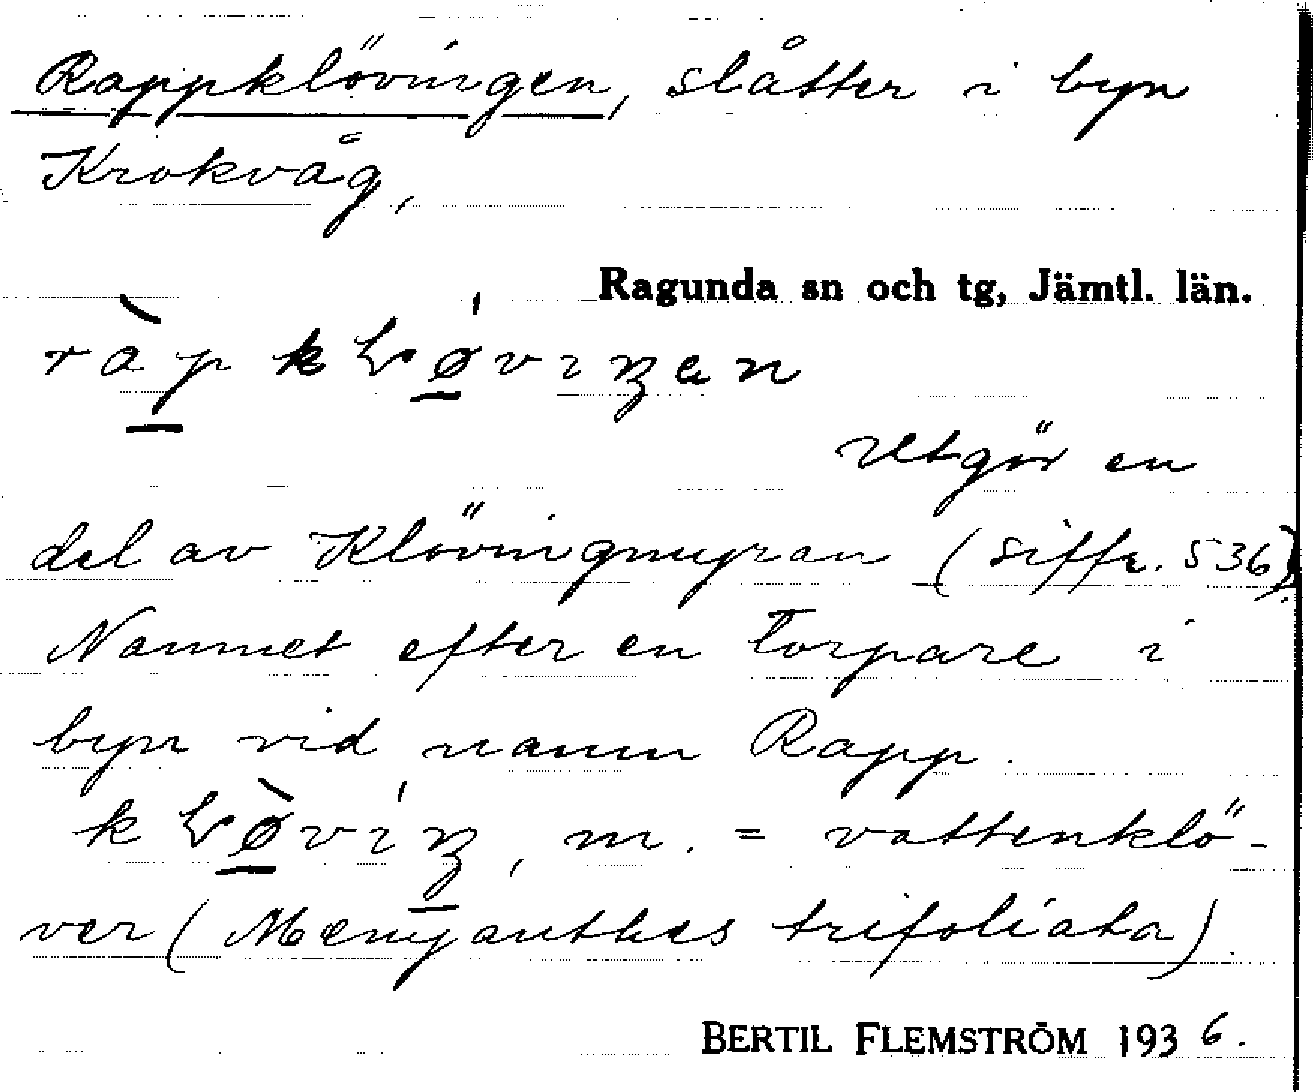 Rappklövingen, slåtter i byn
Krokvåg,
Ragunda sn och tg, Jämtl. län.
Utgör en
del av Klövingmyran (siffr. 536).
Namnet efter en torpare i
byn vid namn Rapp.
m. = vattenklö-
ver (Menyanthes trifoliata).
BERTIL FLEMSTRÖM 1936.